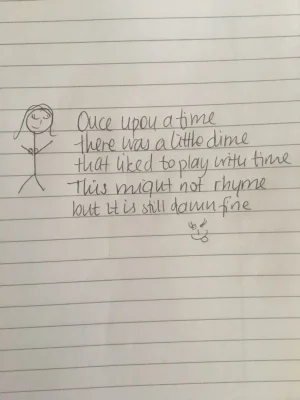 Once upon a time
there was a little dime
that liked to play with time
This might not rhyme
but it is still damn fine